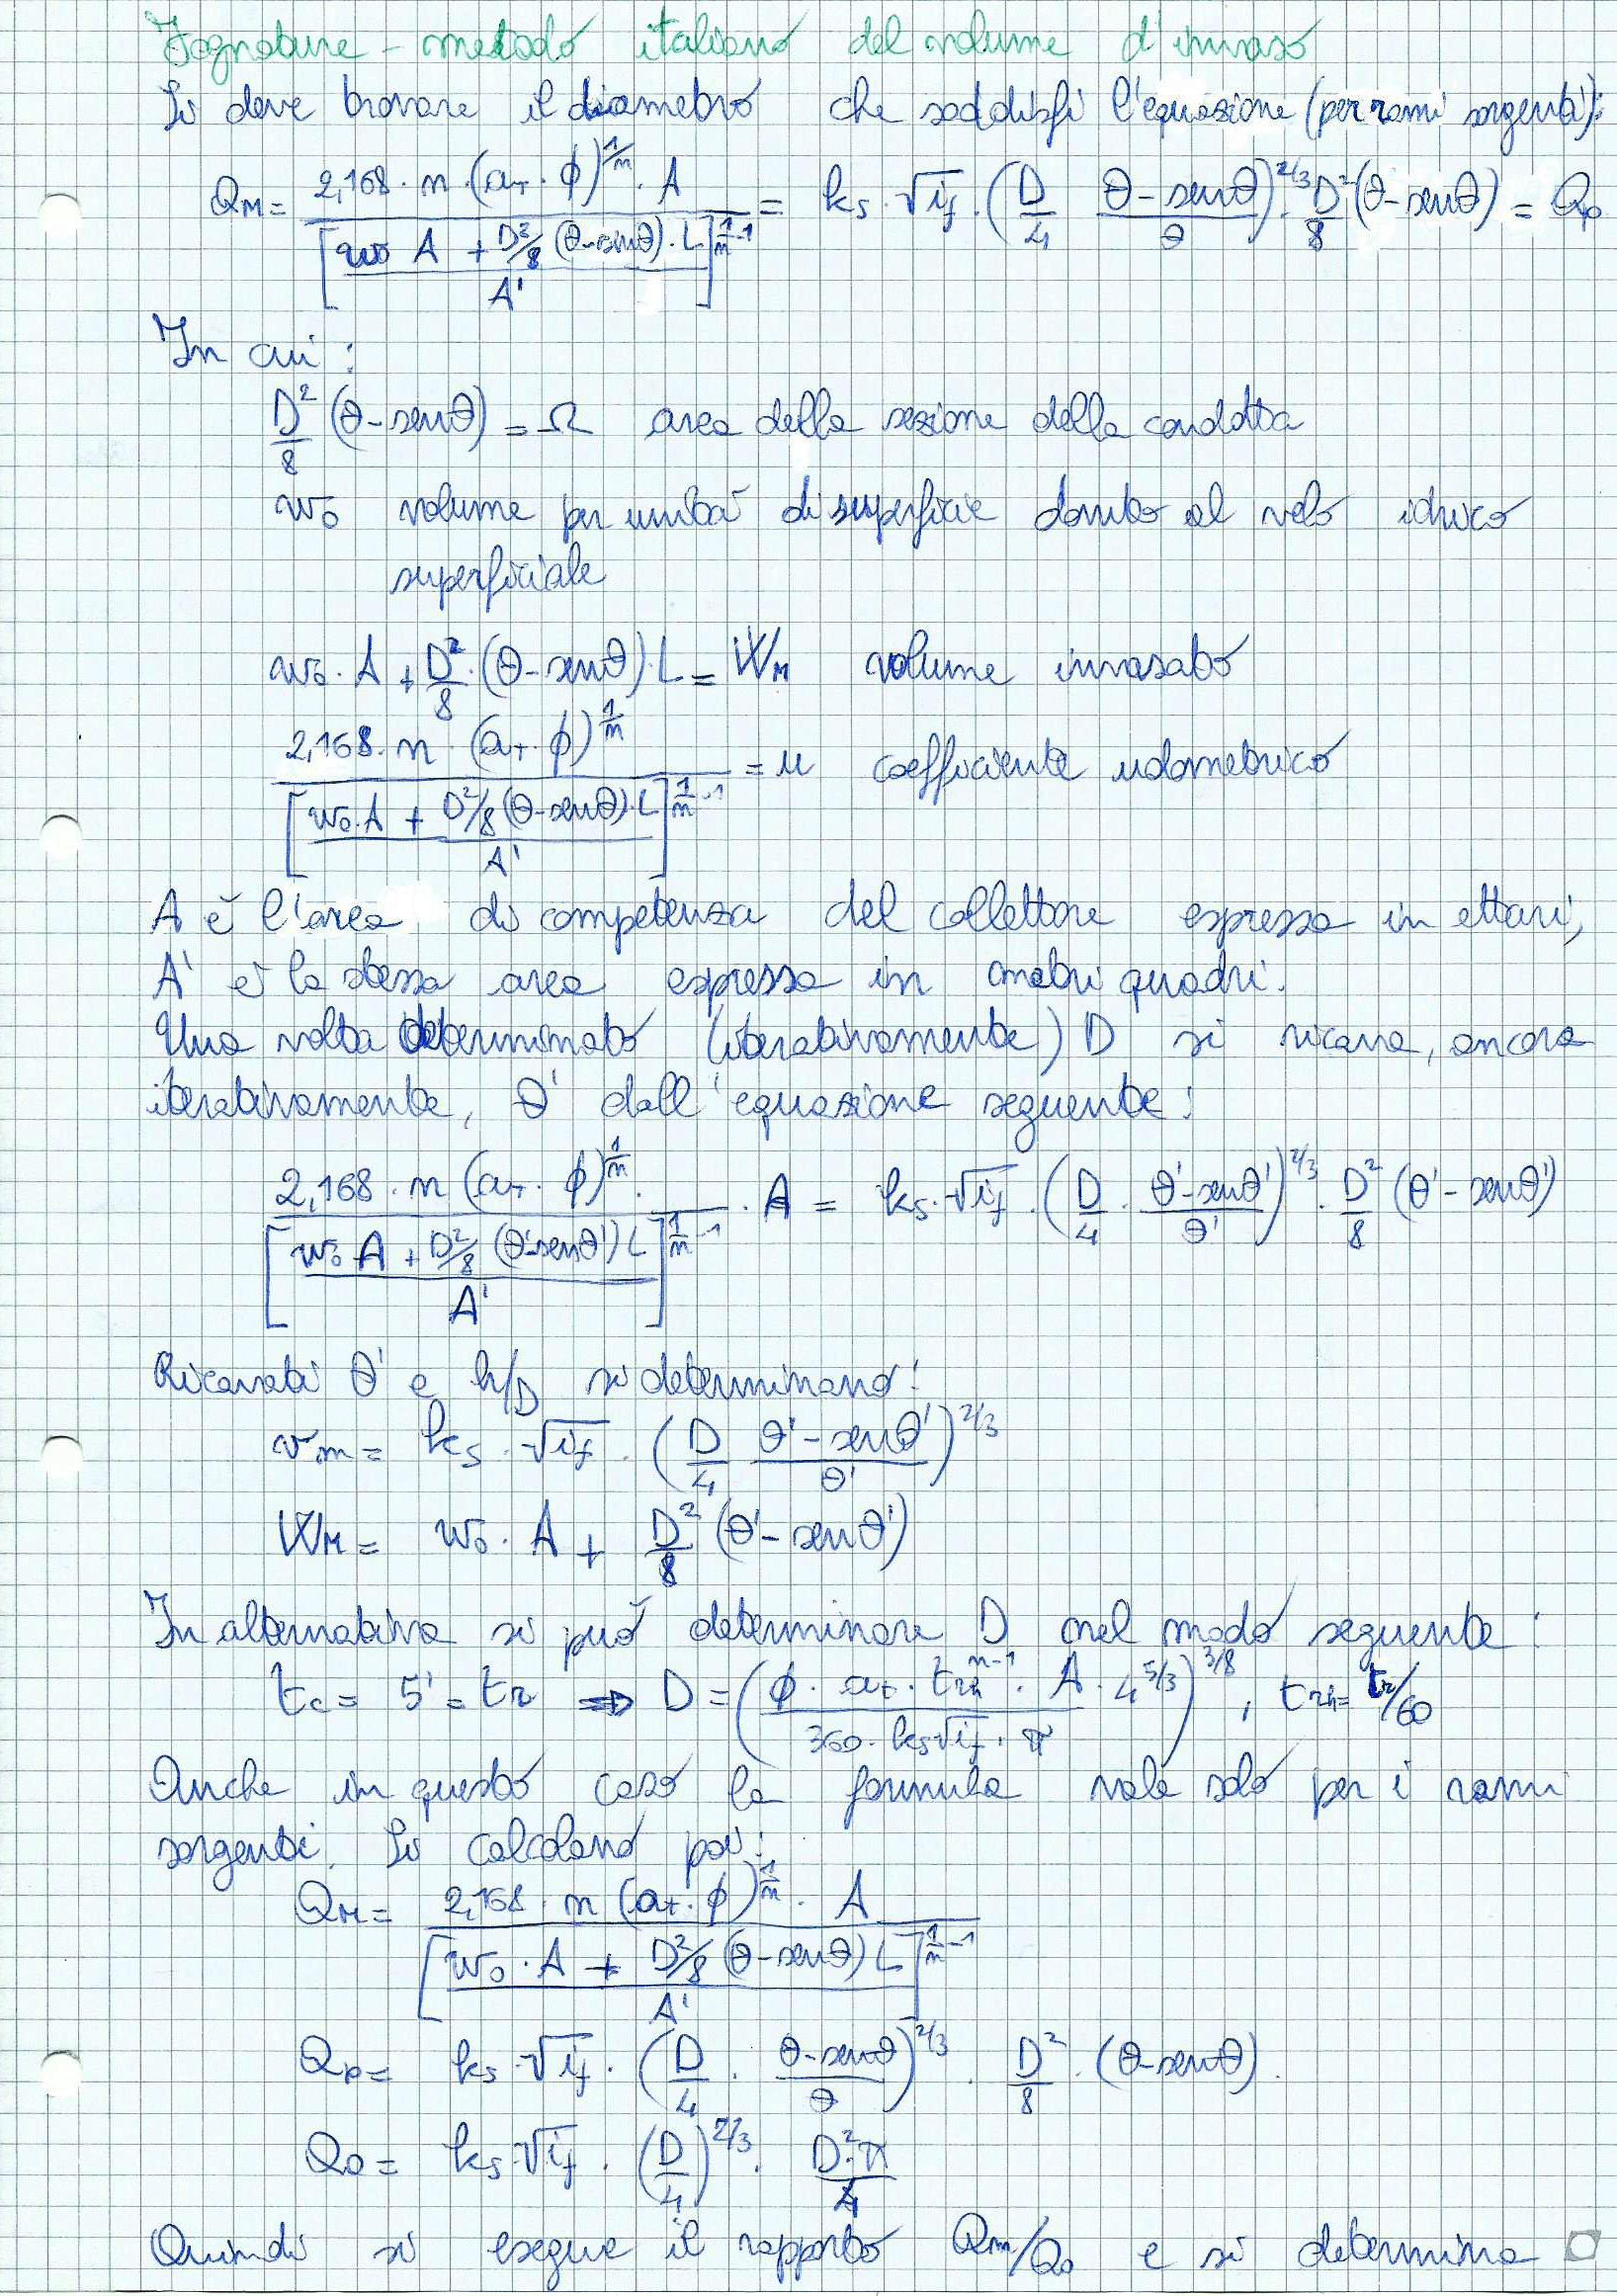 Fognature - metodo italiano del volume d'invaso
Si deve trovare il diametro che soddisfi l'equazione (per rami sorgenti):
Q_M = 2,168 · n · (a_T · ϕ)^(1/n) · A / [(w_0 A + D²/8 (θ-sinθ) · L) / A']^(1/n - 1) = k_s · √i_f · (D/4 (θ-senθ)/θ)^(2/3) · D²/8 (θ-senθ) = Q_p
In cui :
D²/8 (θ-senθ) = Ω area della sezione della condotta
w_0 volume per unità di superficie dovuto al velo idrico
superficiale
w_0 · A + D²/8 · (θ-senθ) · L = W_M volume invasato
2,168 · n · (a_T · ϕ)^(1/n) / [(w_0 · A + D²/8 (θ-senθ) · L) / A']^(1/n - 1) = u coefficiente udometrico
A è l'area di competenza del collettore espressa in ettari,
A' è la stessa area espressa in metri quadri.
Una volta determinato (iterativamente) D si ricava, ancora
iterativamente, θ' dall'equazione seguente :
2,168 · n (a_T · ϕ)^(1/n) · / [(w_0 A + D²/8 (θ'-senθ') L) / A']^(1/n - 1) · A = k_s · √i_f · (D/4 · (θ'-senθ')/θ')^(2/3) · D²/8 (θ'-senθ')
Ricavati θ' e h/D si determinano :
v_m = k_s · √i_f · (D/4 (θ'-senθ')/θ')^(2/3)
W_M = w_0 · A + D²/8 (θ'-senθ')
In alternativa si può determinare D nel modo seguente :
t_c = 5' = t_r ⇒ D = (ϕ · a_t · t_rh^(n-1) · A · 4^(5/3) / (360 · k_s √i_f · π))^(3/8) , t_rh = t_r/60
Anche in questo caso la formula vale solo per i rami
sorgenti. Si calcolano poi :
Q_M = 2,168 · n (a_t · ϕ)^(1/n) · A / [(w_0 · A + D²/8 (θ-senθ) L) / A']^(1/n - 1)
Q_p = k_s · √i_f · (D/4 · (θ-senθ)/θ)^(2/3) · D²/8 · (θ-senθ).
Q_0 = k_s · √i_f · (D/4)^(2/3) · D²·π/4
Quindi si esegue il rapporto Q_m/Q_0 e si determina